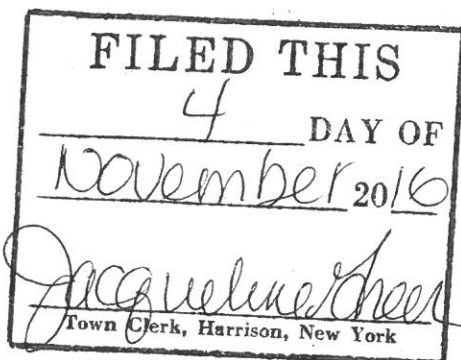 FILED THIS
4 DAY OF
November 2016
Jacqueline Greer
Town Clerk, Harrison, New York